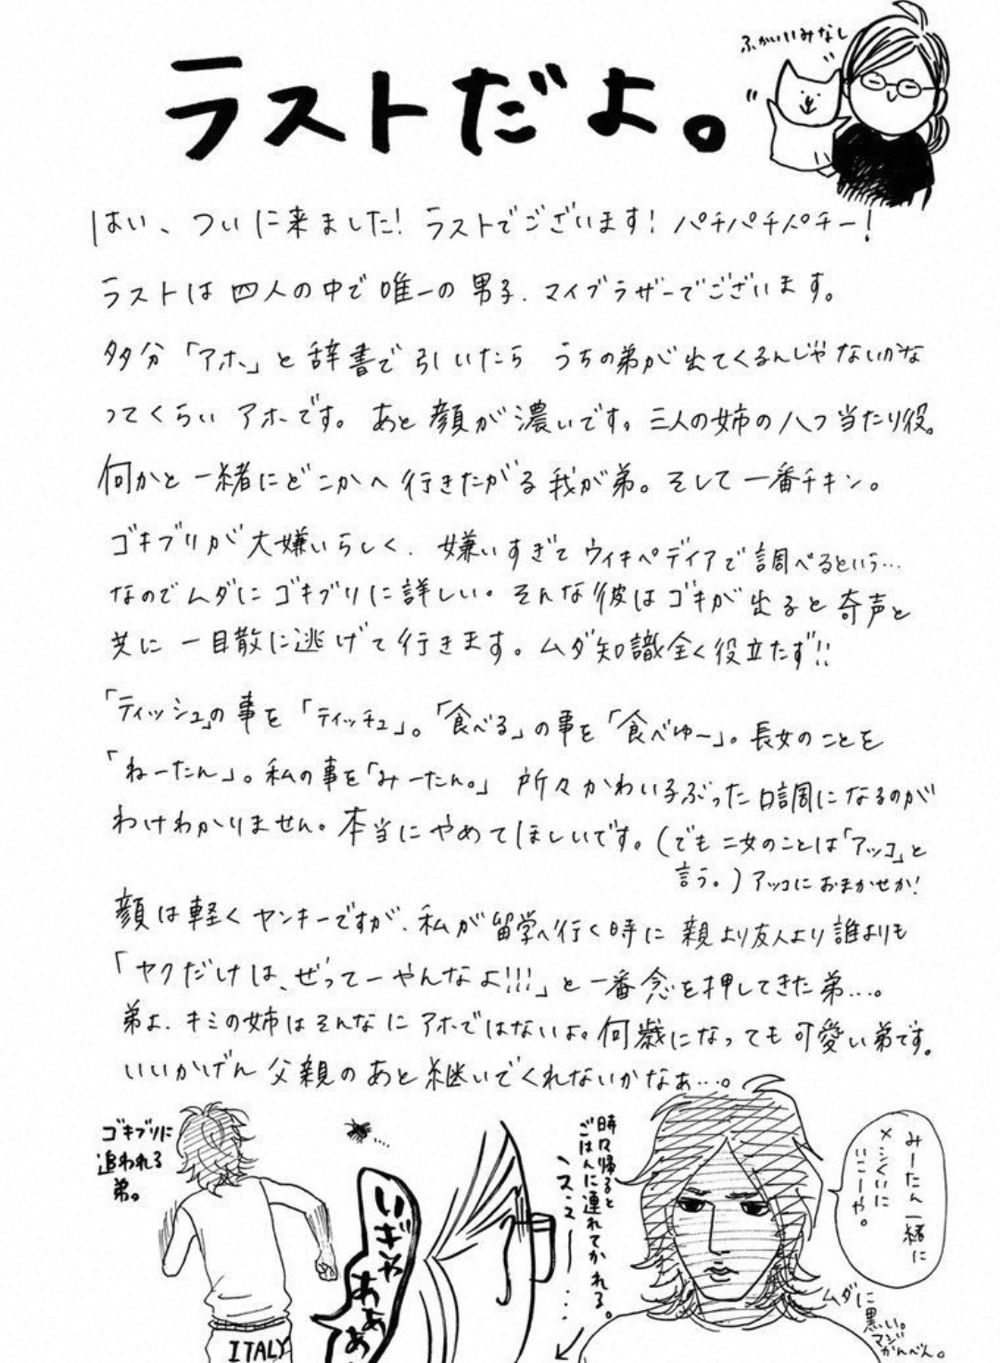 ラストだよ。
ふかいいみなし
はい、ついに来ました!ラストでございます!パチパチパチー!
ラストは四人の中で唯一の男子、マイブラザーでございます。
多分「アホ」と辞書で引いたら うちの弟が出てくるんじゃないかな
ってくらい アホです。あと顔が濃いです。三人の姉の八つ当たり役。
何かと一緒にどこかへ行きたがる我が弟。そして一番チキン。
ゴキブリが大嫌いらしく、嫌いすぎてウィキペディアで調べるという…
なのでムダにゴキブリに詳しい。そんな彼はゴキが出ると奇声と
共に一目散に逃げて行きます。ムダ知識全く役立たず!!
「ティッシュ」の事を「ティッチュ」。「食べる」の事を「食べゆ〜」。長女のことを
「ねーたん」。私の事を「みーたん。」所々かわい子ぶった口調になるのが
わけわかりません。本当にやめてほしいです。(でも二女のことは「アッコ」と
言う。)アッコにおまかせか!
顔は軽くヤンキーですが、私が留学へ行く時に親より友人より誰よりも
「ヤクだけは、ぜってーやんなよ!!!」と一番念を押してきた弟…。
弟よ、キミの姉はそんなにアホではないよ。何歳になっても可愛い弟です。
いいかげん父親のあと継いでくれないかなぁ…。
ゴキブリに
追われる
弟。
ITALY
いぎゃ
あああ
時々帰ると
ごはんに連れてかれる。
みーたん一緒に
メシくいに
いこーや。
ムダに
黒い。
マジ
かんべん。